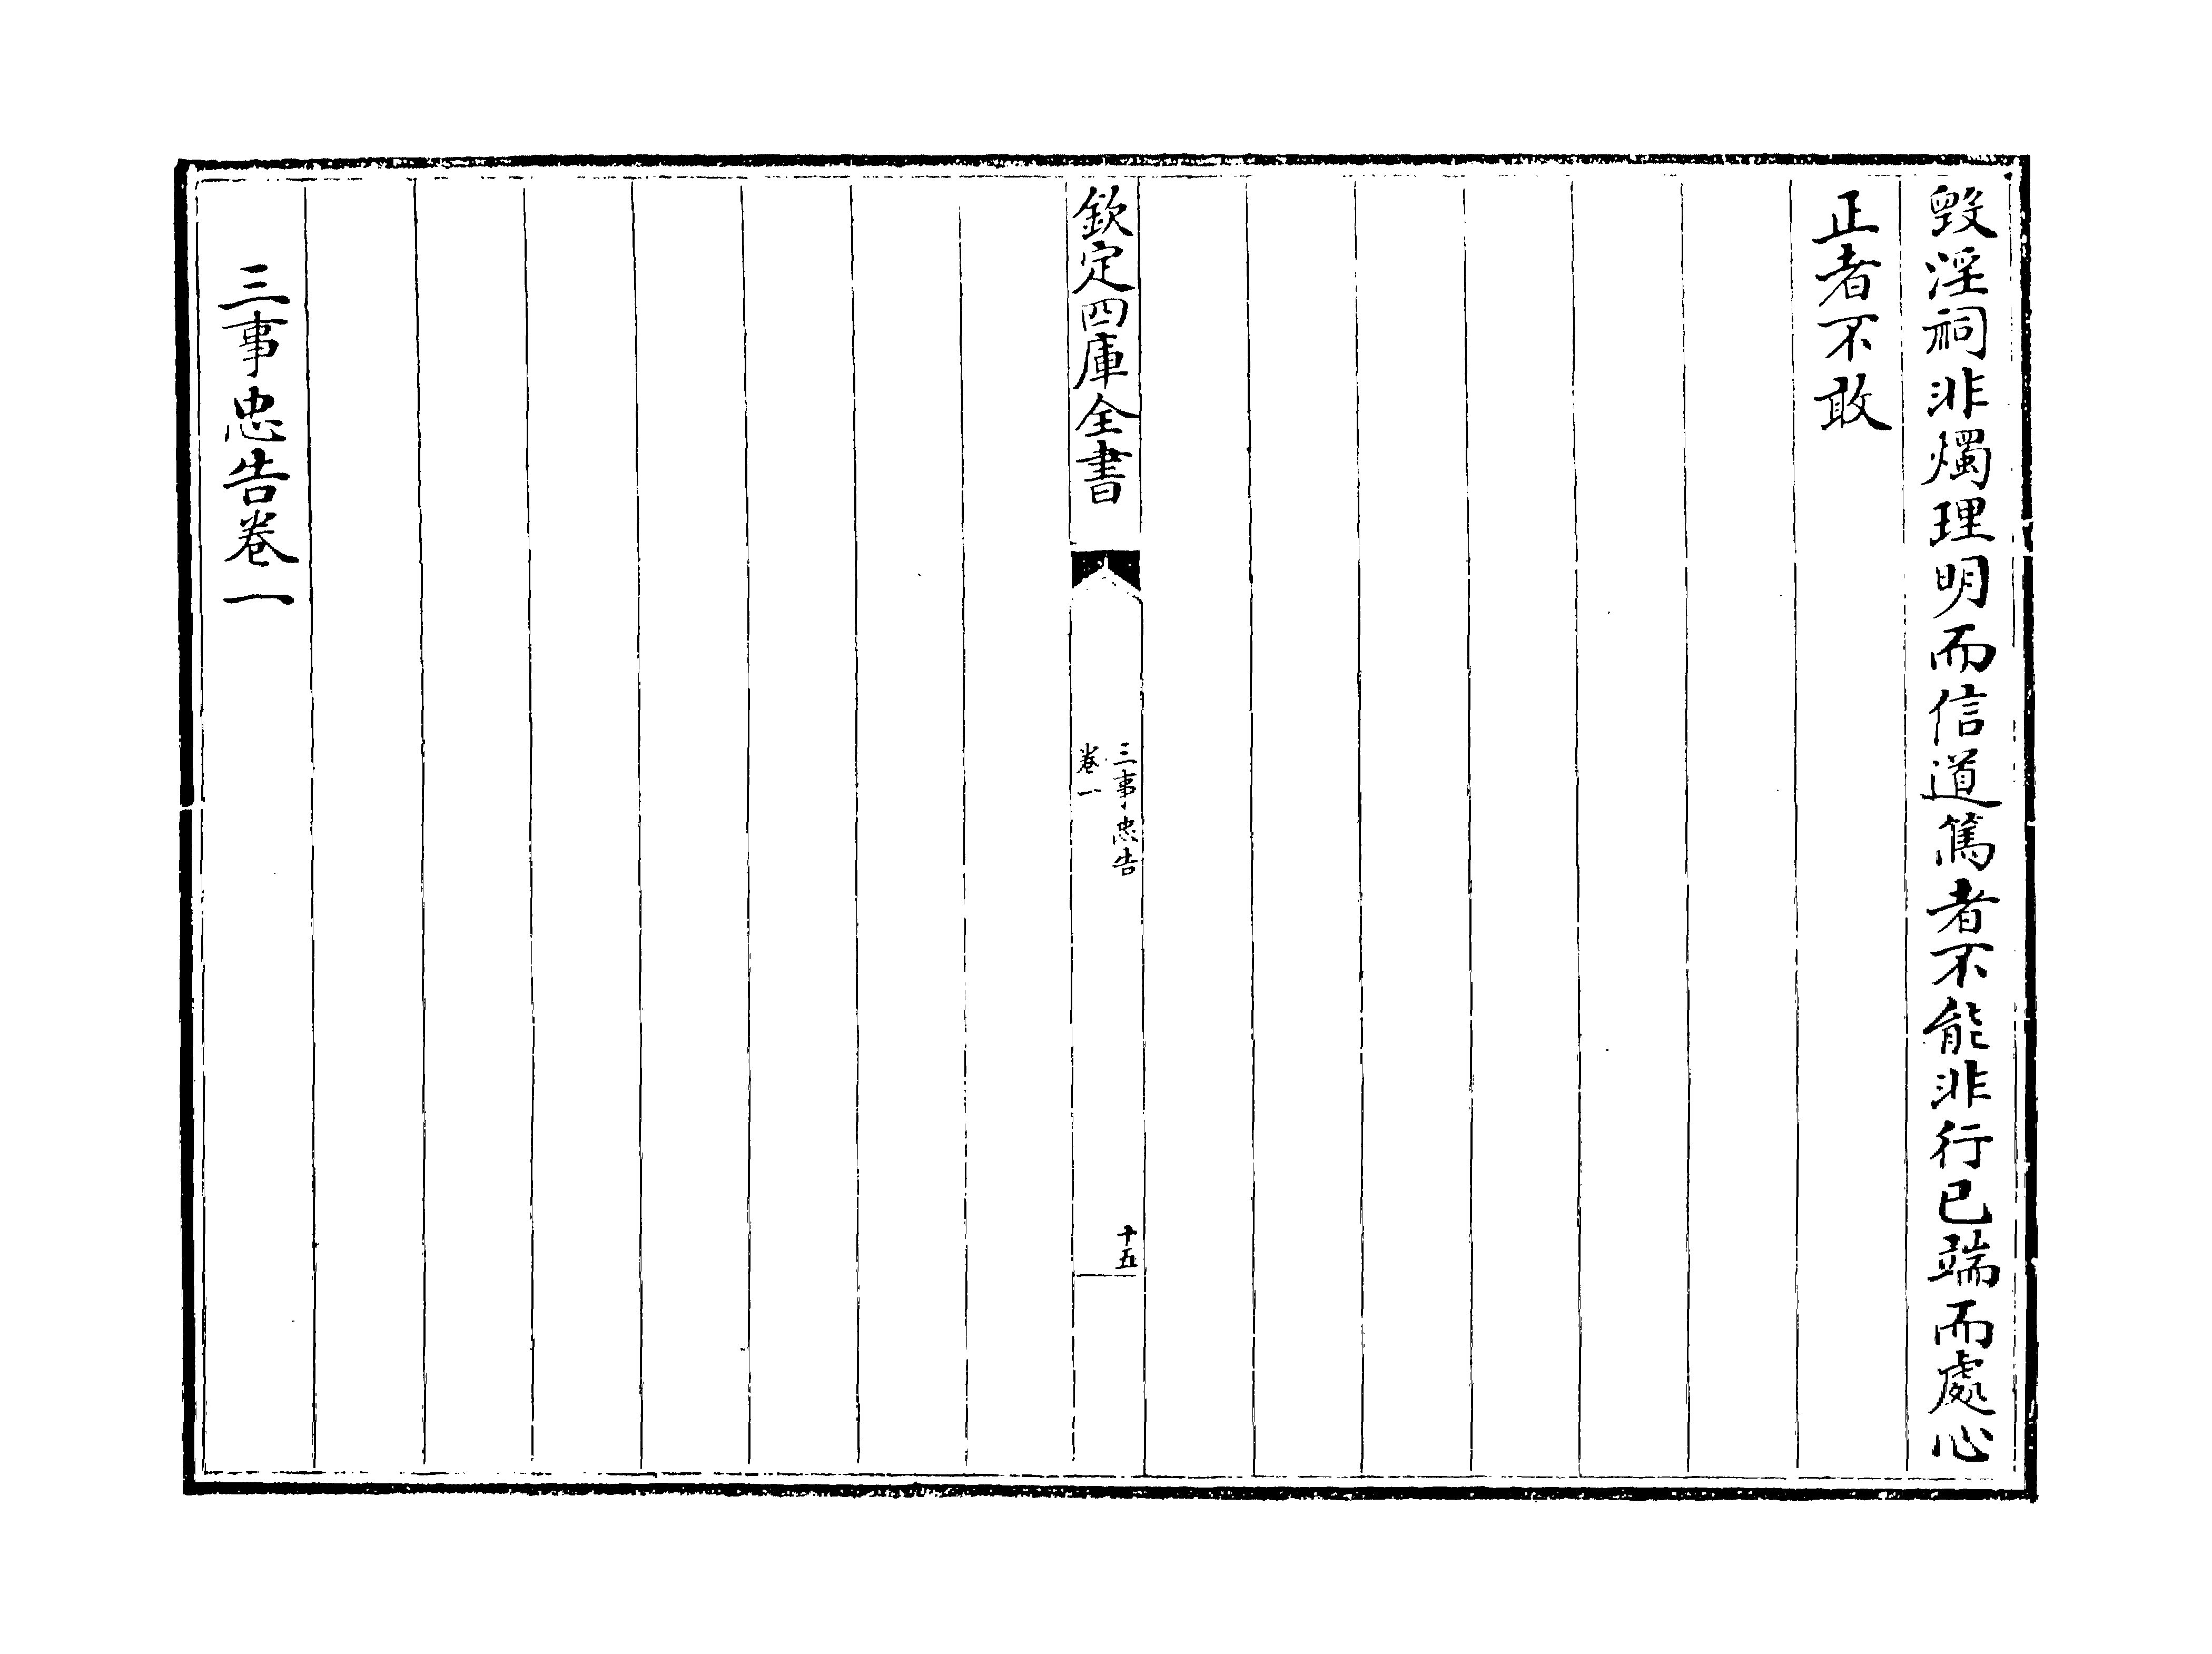 毀淫祠非燭理明而信道篤者不能非行已端而處心
正者不敢
欽定四庫全書
三事忠告
卷一
十五
三事忠告卷一